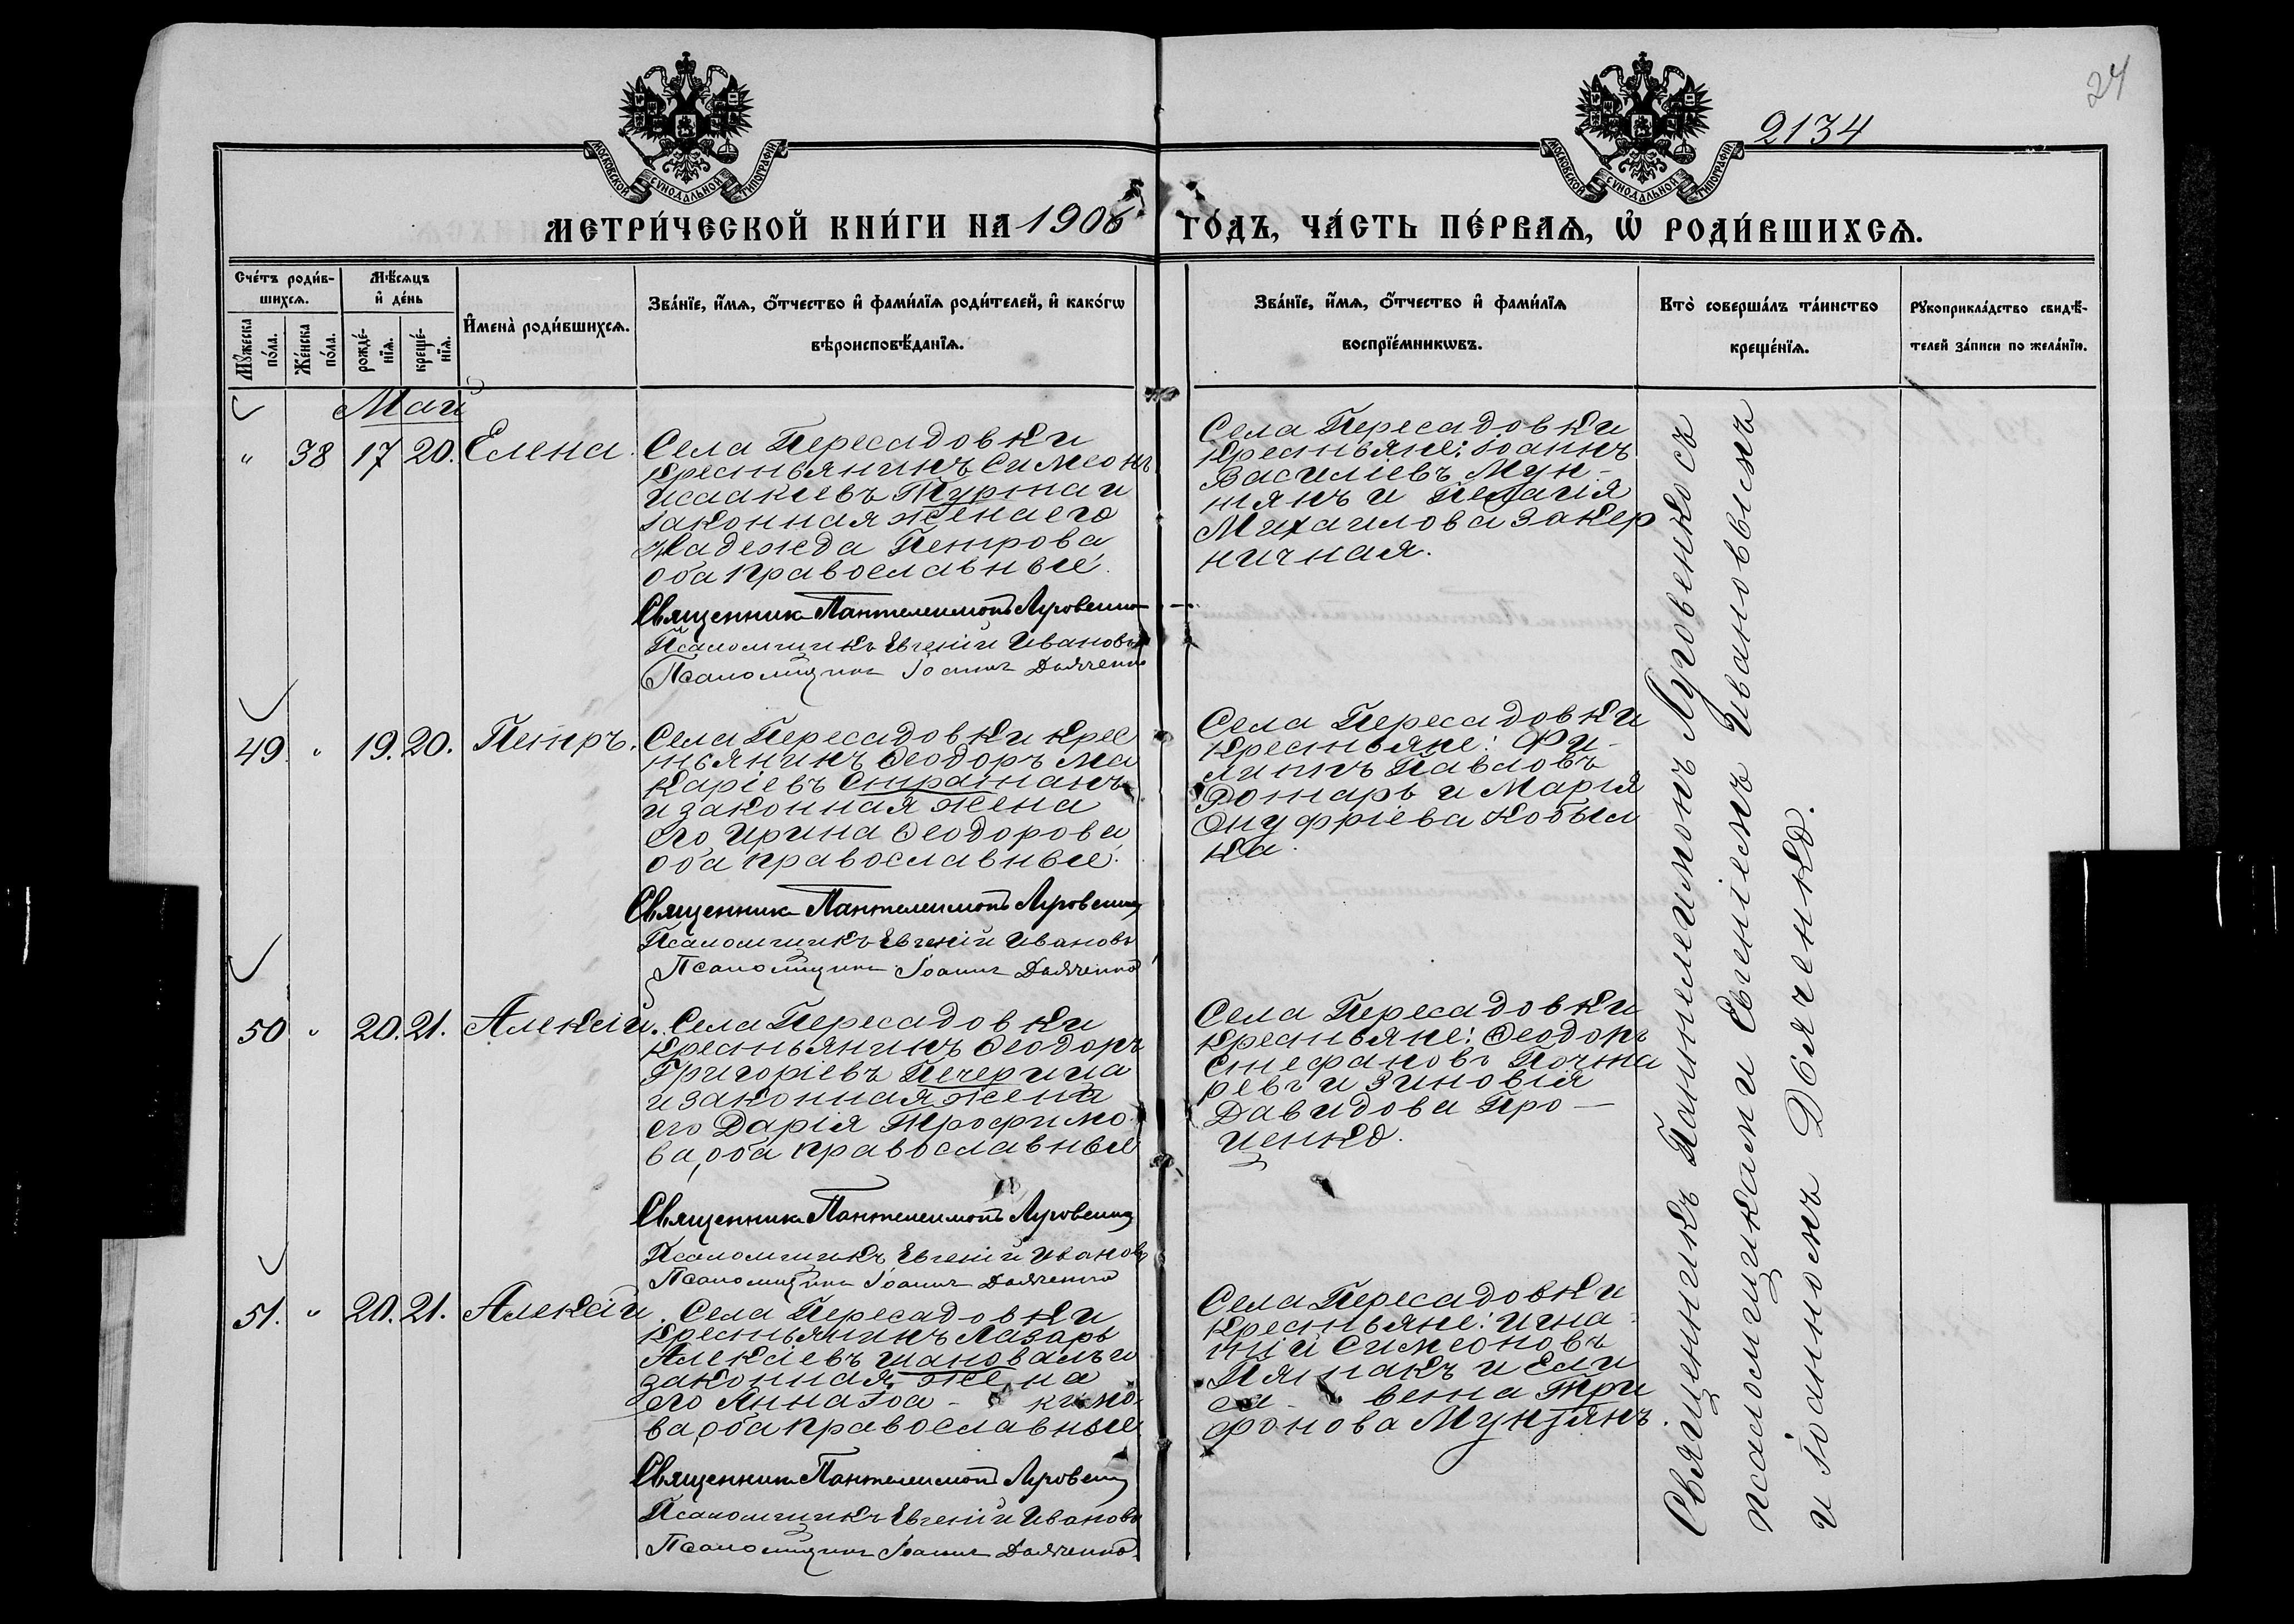 24
2134
МОСКОВСКОЙ СѴНОДАЛЬНОЙ ТИПОГРАФІИ
МОСКОВСКОЙ СѴНОДАЛЬНОЙ ТИПОГРАФІИ
МЕТРИ́ЧЕСКОЙ КНИ́ГИ НА 1906 ГО́ДЪ, ЧА́СТЬ ПЕ́РВАѦ, Ѽ РОДИ́ВШИХСѦ.
Сче́тъ роди́в-
шихсѧ.
Мꙋ́жеска
по́ла.
Же́нска
по́ла.
Мѣ́сѧцъ
и҆ де́нь
рожде́-
нїѧ.
креще́-
нїѧ.
И҆мена̀ роди́вшихсѧ.
Зва́нїе, и҆́мѧ, ѻ҆́тчество и҆ фами́лїѧ роди́телей, и҆ како́гѡ
вѣроисповѣ́данїѧ.
Зва́нїе, и҆́мѧ, ѻ҆́тчество и҆ фами́лїѧ
воспрїе́мникѡвъ.
Кто̀ соверша́лъ та́инство
креще́нїѧ.
Рꙋкоприкла́дство свидѣ́-
телей за́писи по жела́нїю.
Май
" 38 17 20. Елена.
Села Пересадовки
крестьянинъ Симеонъ
Исаакіевъ Турта и
законная жена его
Надежда Петрова
оба православные.
Священникъ Пантелеимонъ Луговенко
Псаломщикъ Евгеній Ивановъ
Псаломщикъ Іоаннъ Дьяченко
Села Пересадовки
крестьяне: Іоаннъ
Василіевъ Мун-
тянъ и Пелагія
Михаилова Закер
ничная.
49 " 19. 20. Петръ.
Села Пересадовки крес
тьянинъ Ѳеодоръ Ма
каріевъ Стратанъ
и законная жена
его Ирина Ѳеодорова,
оба православные.
Священникъ Пантелеимонъ Луговенко
Псаломщикъ Евгеній Ивановъ
Псаломщикъ Іоаннъ Дьяченко
Села Пересадовки
крестьяне: Фи-
липпъ Павловъ
Ротарь и Марія
Онуфріева Кобыл
ка.
50 " 20. 21. Алексій.
Села Пересадовки
крестьянинъ Ѳеодоръ
Григоріевъ Печерица
и законная жена
его Дарія Трофимо
ва, оба православные
Священникъ Пантелеимонъ Луговенко
Псаломщикъ Евгеній Ивановъ
Псаломщикъ Іоаннъ Дьяченко
Села Пересадовки
крестьяне: Ѳеодоръ
Стефановъ Почта
ревъ и Зиновія
Давидова Про-
ценко.
51. " 20. 21. Алексій.
Села Пересадовки
крестьянинъ Лазарь
Алексіевъ Шаповалъ и
законная жена
его Анна Іоа - кимо-
ва, оба православные
Священникъ Пантелеимонъ Луговенко
Псаломщикъ Евгеній Ивановъ
Псаломщикъ Іоаннъ Дьяченко
Села Пересадовки
крестьяне: Игна-
тій Симеоновъ
и Ели
са - вета Три
фонова Мунтянъ.
Священникъ Пантелеимонъ Луговенко съ
псаломщиками Евгеніемъ Ивановымъ
и Іоанномъ Дьяченко.